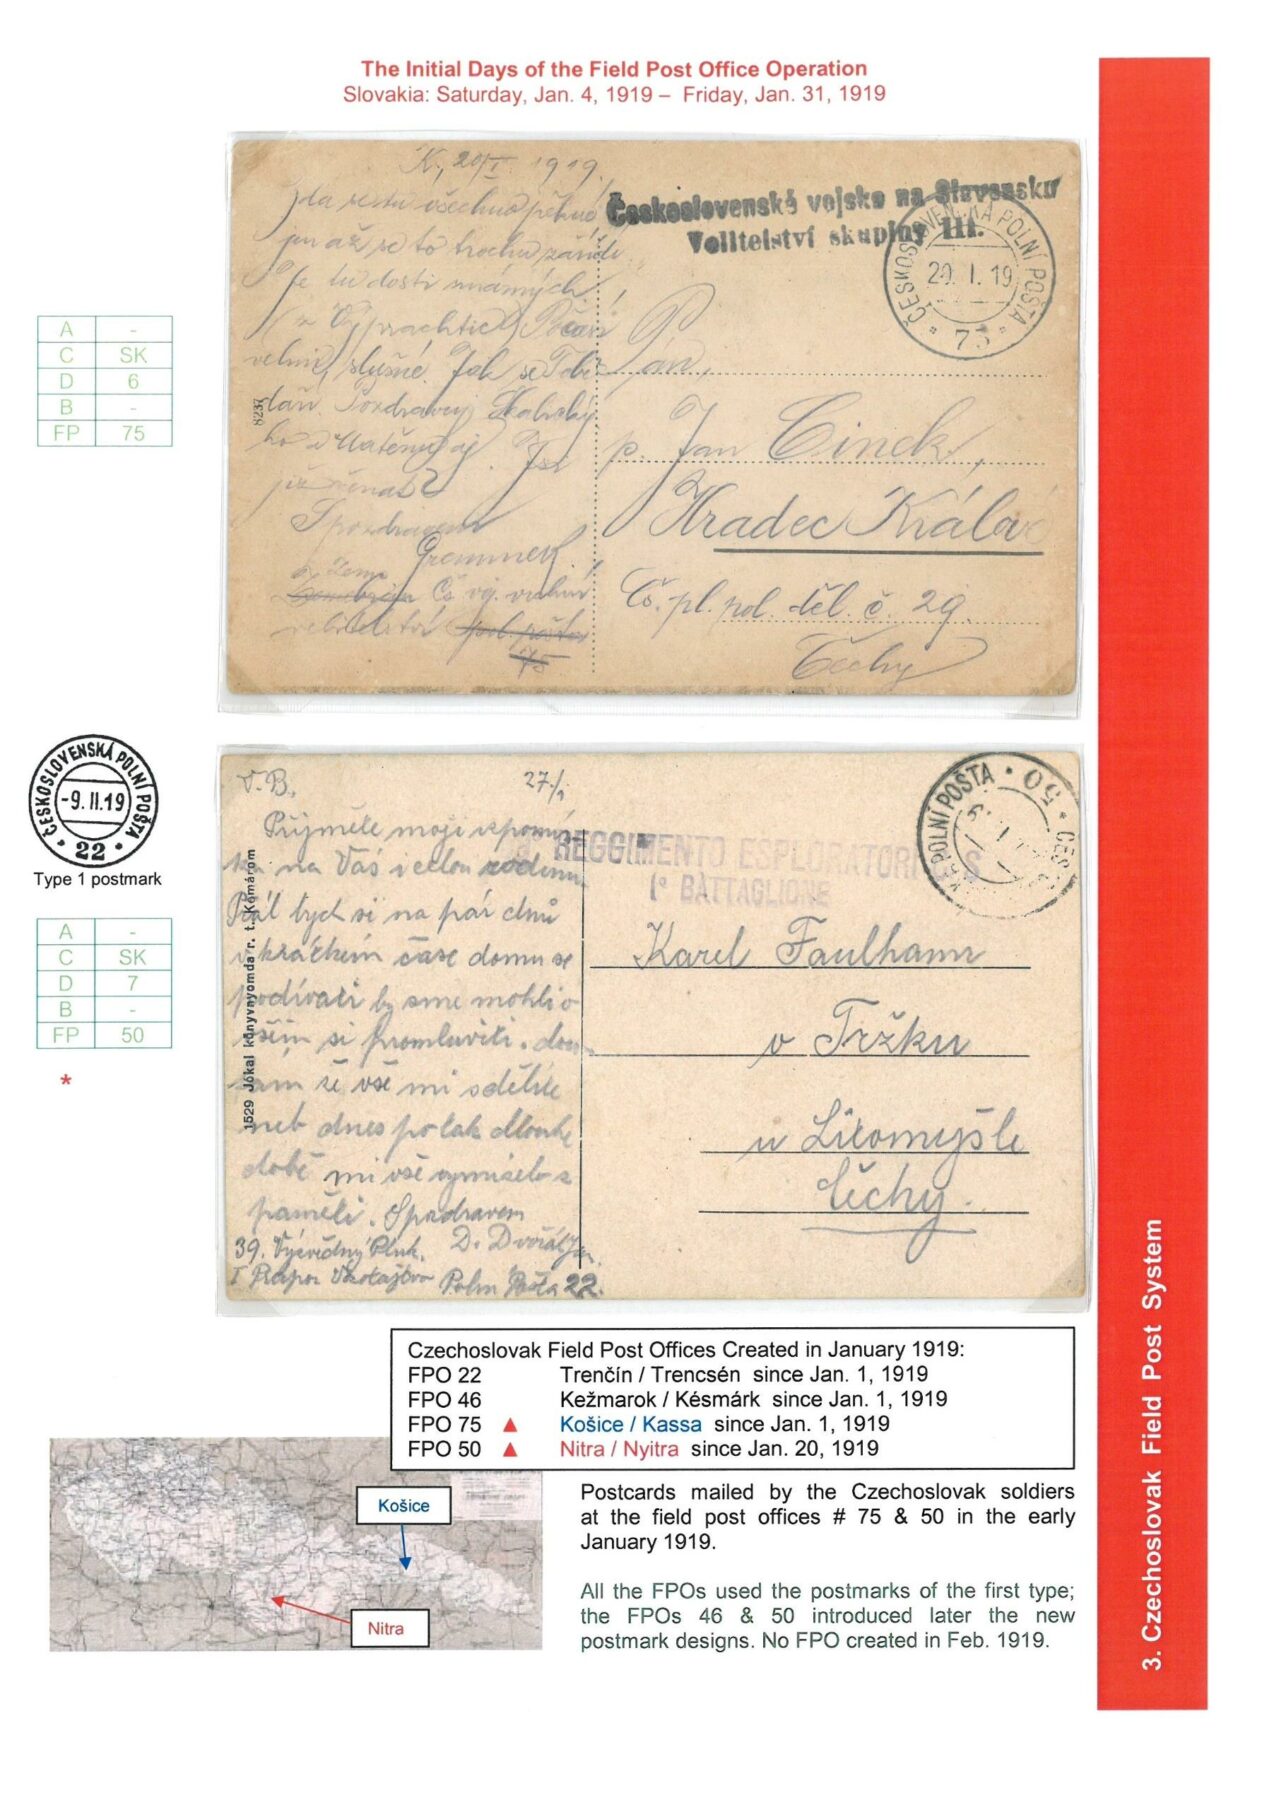 The Initial Days of the Field Post Office Operation
Slovakia: Saturday, Jan. 4, 1919 – Friday, Jan. 31, 1919
K, 20/I. 1919.
Československé vojsko na Slovensku
Velitelství skupiny III.
ČESKOSLOVENSKÁ POLNÍ POŠTA
20. I. 19
* 75 *
jen až se to trochu
Je tu dosti známých
velmi slušné. Jak se Tobě
daří. Pozdravuj
8237
S pozdravem
Čs voj.
velitelství pol. pošta
75
Pan,
p. Jan Cinek,
Hradec Králové
Čs. pl. pol. děl. č. 29.
Čechy
A -
C SK
D 6
B -
FP 75
ČESKOSLOVENSKÁ POLNÍ POŠTA
-9. II. 19
* 22 *
Type 1 postmark
A -
C SK
D 7
B -
FP 50
*
V. B. 27/I
Přijměte moji
na Vás i celou rodinu
Rád bych si na pár dnů
v krátkém čase domu se
podívati by sme mohli o
všem si promluviti.
že vše mi sdělíte
neb dnes po tak dlouhé
době mi vše vymizelo z
paměti. S pozdravem
39. Výzvědný Pluk. D. Dvořák
I Prapor Polní Pošta 22.
1529 Jókai könyvnyomda r. t. Komárom
REGGIMENTO ESPLORATORI C S
1° BATTAGLIONE
POLNÍ POŠTA * 50 * ČES
Karel Faulhamr
v Tržku
u Litomyšle
Čechy.
Czechoslovak Field Post Offices Created in January 1919:
FPO 22 Trenčín / Trencsén since Jan. 1, 1919
FPO 46 Kežmarok / Késmárk since Jan. 1, 1919
FPO 75 ▲ Košice / Kassa since Jan. 1, 1919
FPO 50 ▲ Nitra / Nyitra since Jan. 20, 1919
Košice
Nitra
Postcards mailed by the Czechoslovak soldiers
at the field post offices # 75 & 50 in the early
January 1919.
All the FPOs used the postmarks of the first type;
the FPOs 46 & 50 introduced later the new
postmark designs. No FPO created in Feb. 1919.
3. Czechoslovak Field Post System